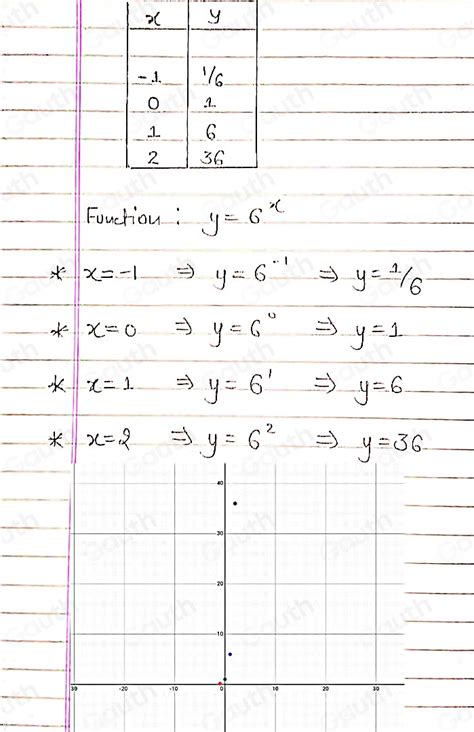 x y
-1 1/6
0 1
1 6
2 36
Function : y = 6^x
* x=-1 ⇒ y=6^-1 ⇒ y=1/6
* x=0 ⇒ y=6^0 ⇒ y=1
* x=1 ⇒ y=6^1 ⇒ y=6
* x=2 ⇒ y=6^2 ⇒ y=36
40
30
20
10
30 -20 -10 0 10 20 30
Gauth